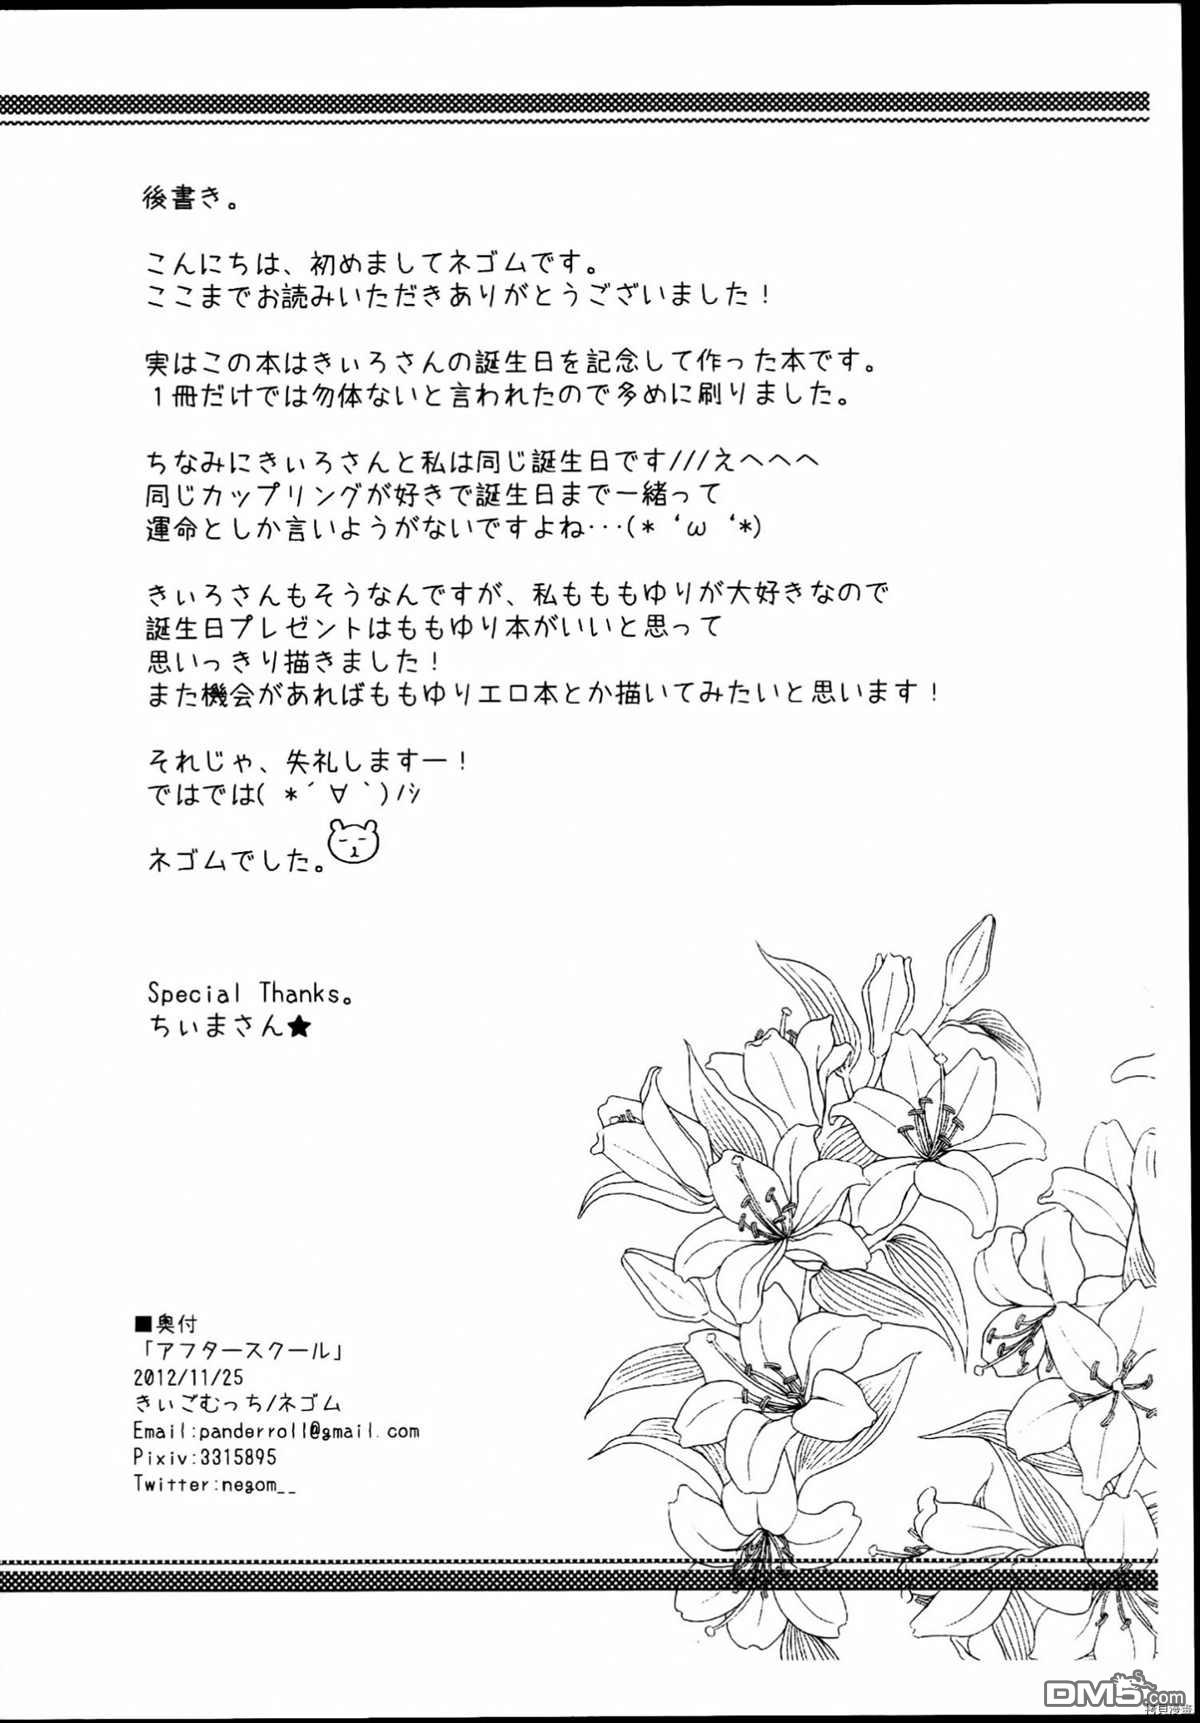 後書き。
こんにちは、初めましてネゴムです。
ここまでお読みいただきありがとうございました！
実はこの本はきぃろさんの誕生日を記念して作った本です。
１冊だけでは勿体ないと言われたので多めに刷りました。
ちなみにきぃろさんと私は同じ誕生日です///えへへへ
同じカップリングが好きで誕生日まで一緒って
運命としか言いようがないですよね…(*‘ω‘*)
きぃろさんもそうなんですが、私もももゆりが大好きなので
誕生日プレゼントはももゆり本がいいと思って
思いっきり描きました！
また機会があればももゆりエロ本とか描いてみたいと思います！
それじゃ、失礼しますー！
ではでは( *´∀｀)ﾉｼ
ネゴムでした。
Special Thanks。
ちぃまさん★
■奥付
「アフタースクール」
2012/11/25
きぃごむっち/ネゴム
Email:panderroll@gmail.com
Pixiv:3315895
Twitter:negom__
DM5.com
拷貝漫畫